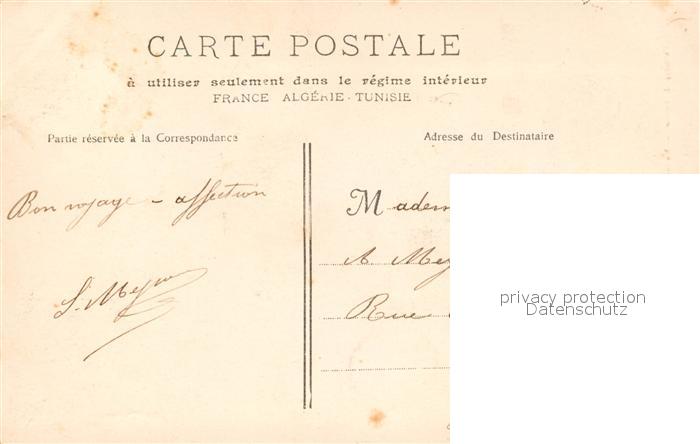 CARTE POSTALE
à utiliser seulement dans le régime intérieur
FRANCE ALGÉRIE - TUNISIE
Partie réservée à la Correspondance
Adresse du Destinataire
Bon voyage - affection
Madem
A Mey
Rue
privacy protection
Datenschutz